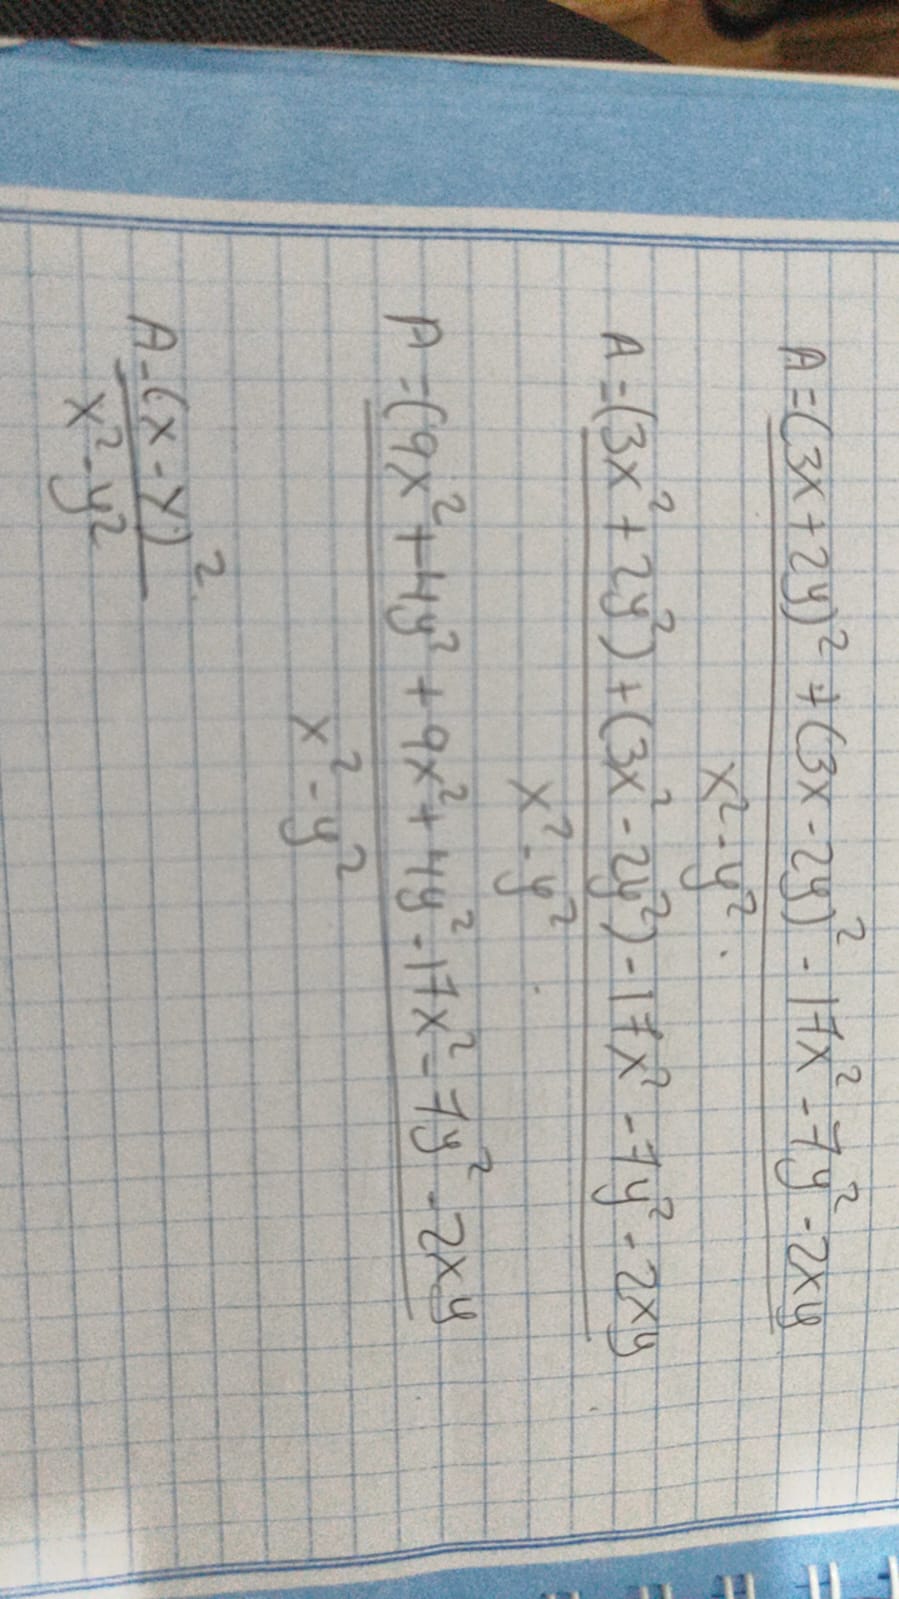 A = (3x + 2y)² + (3x - 2y)² - 17x² - 7y² - 2xy
x² - y²
A = (3x² + 2y²) + (3x² - 2y²) - 17x² - 7y² - 2xy
x² - y²
A = (9x² + 4y² + 9x² + 4y² - 17x² - 7y² - 2xy
x² - y²
A - (x - y)²
x² - y²